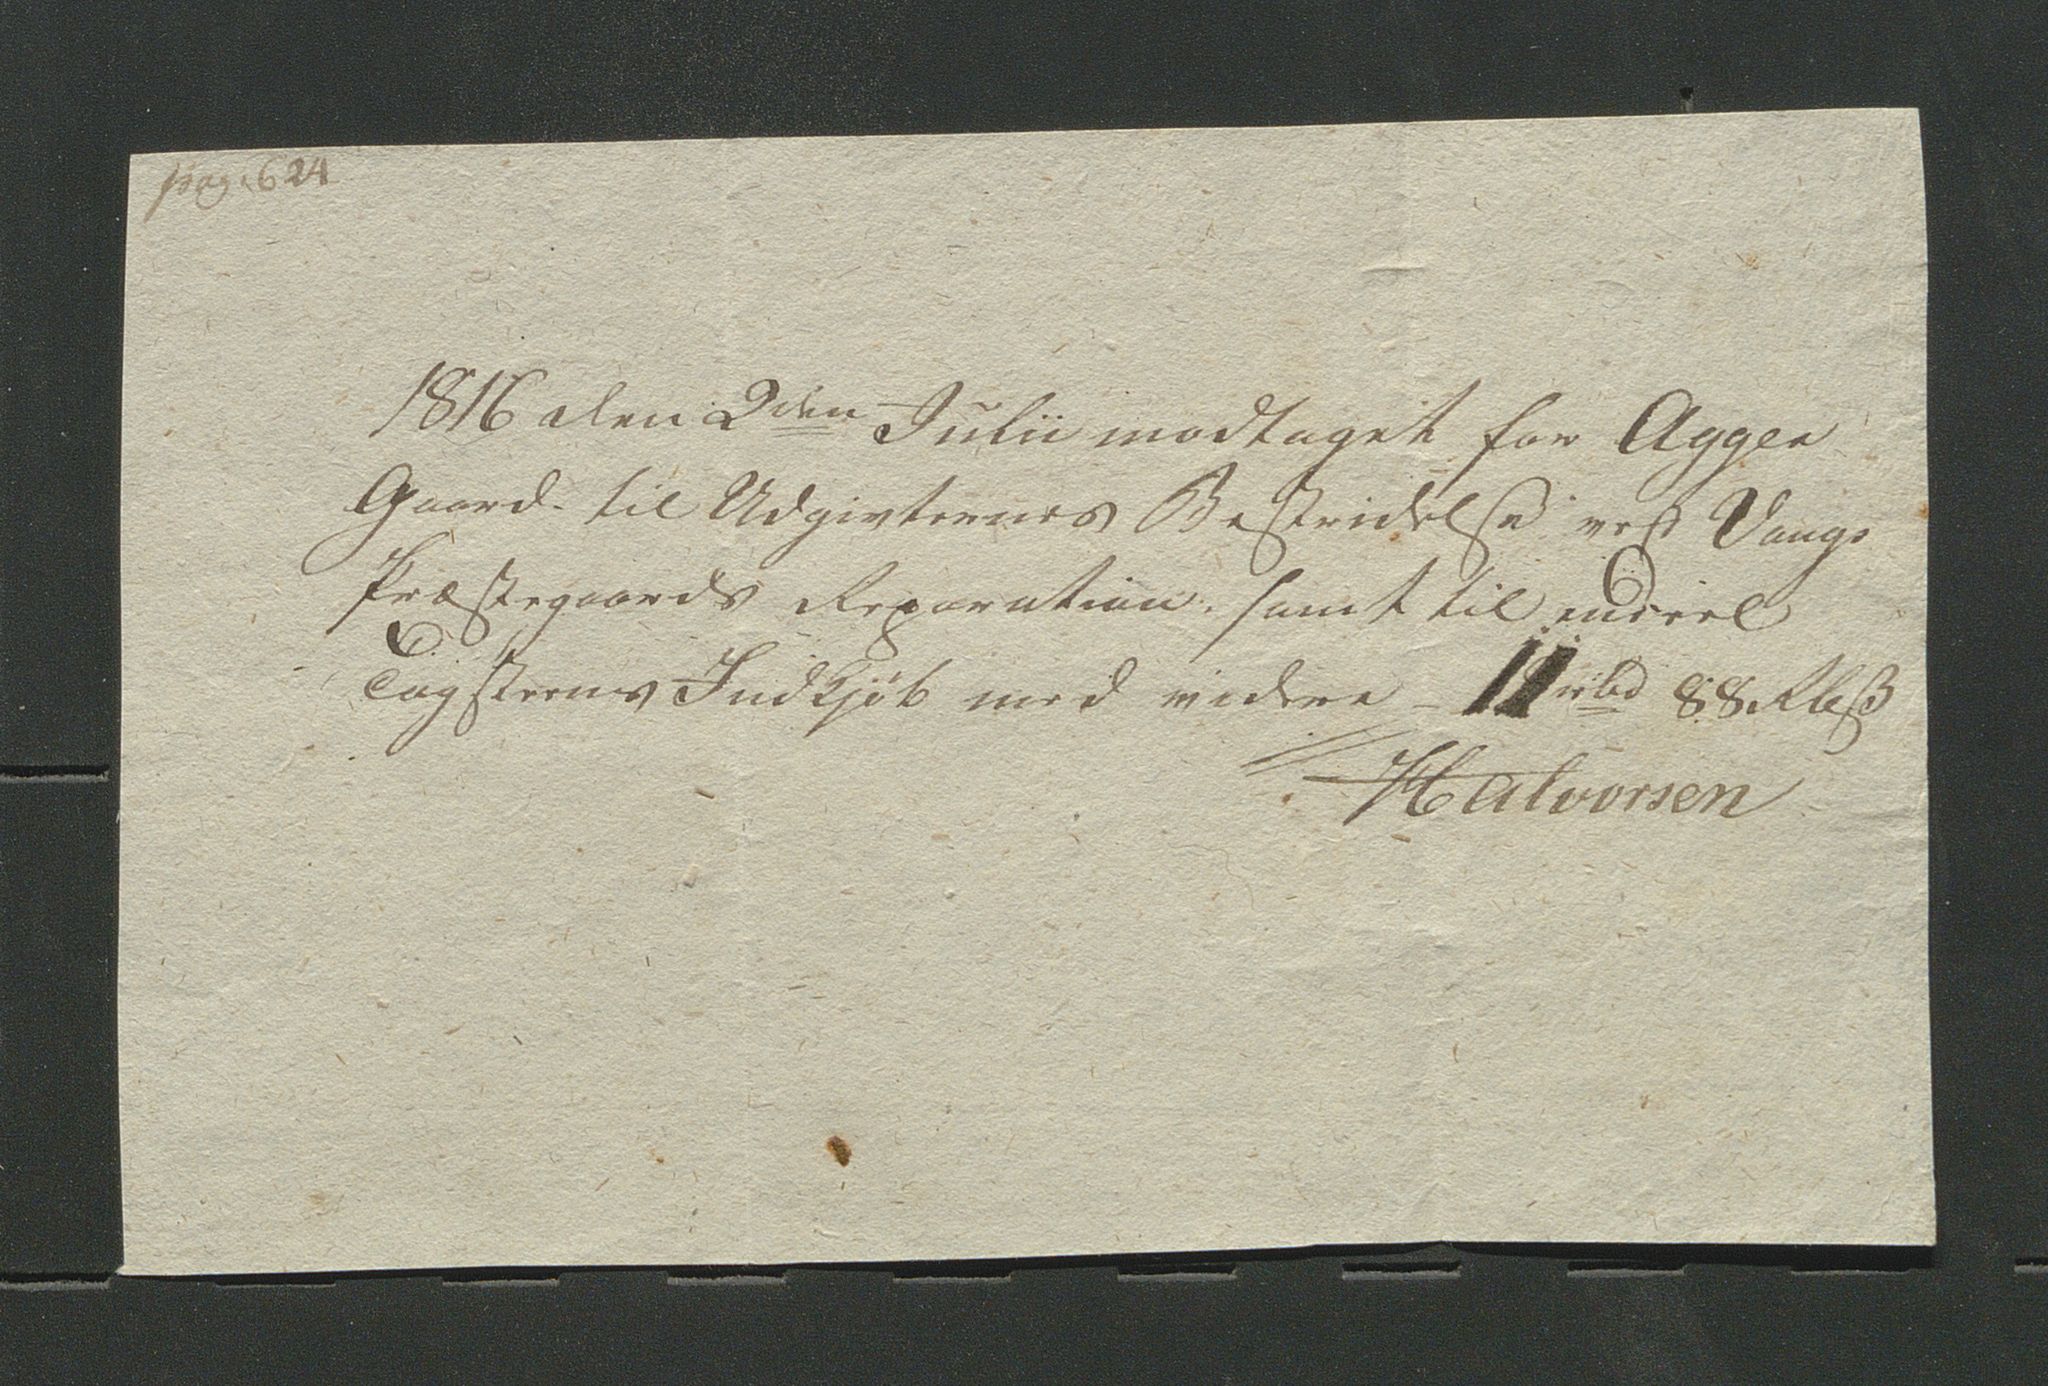 pag: 624
1816 den 2den Julii modtaget for Agger
Gaard til Udgivternes Bestridelse ved Vangs
Præstegaards Reparation. samt til endeel
Tagsteens Indkjøb med videre - 11 rbd 88 Rbß
Halvorsen